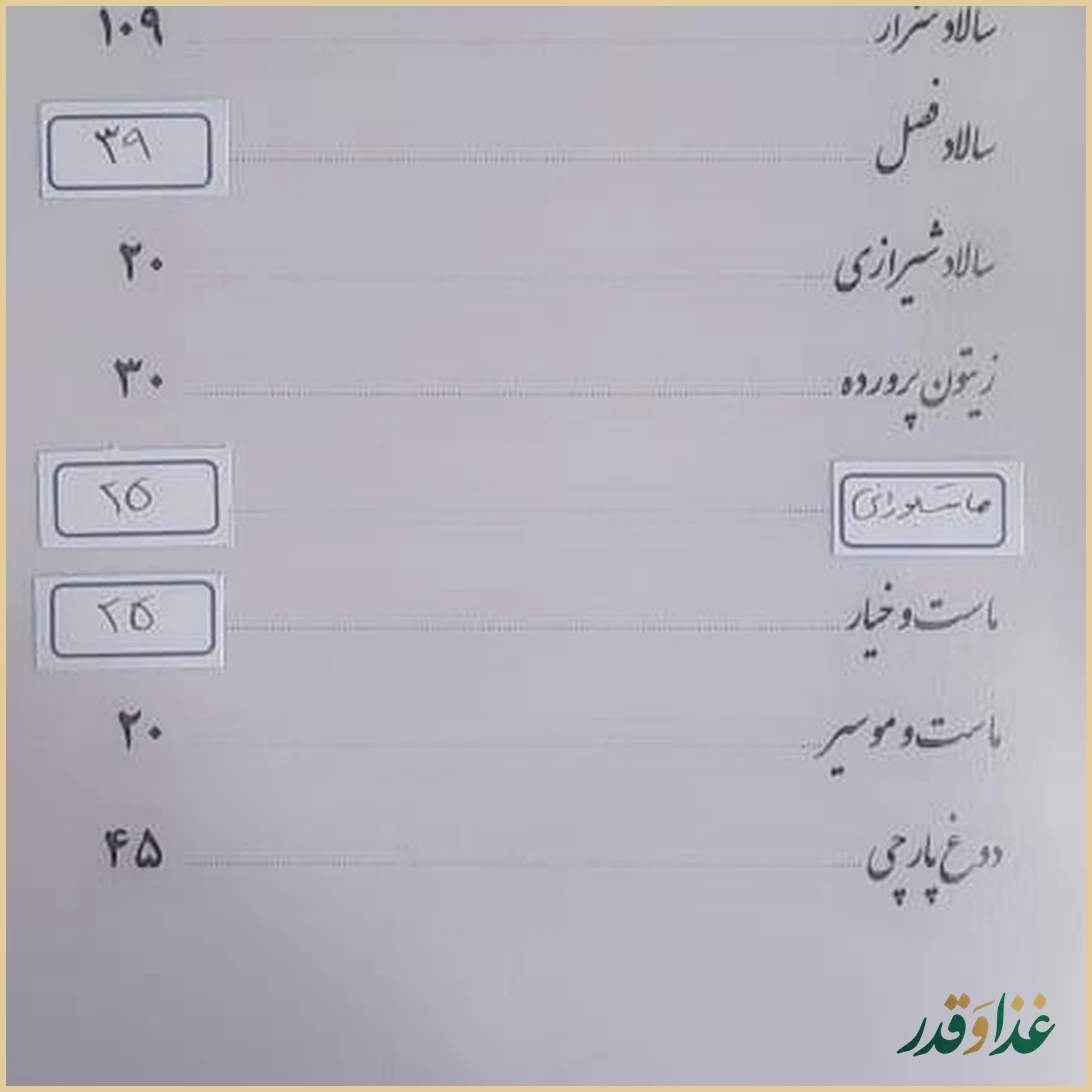 سالاد سزار ۱۰۹
سالاد فصل ۳۹
سالاد شیرازی ۲۰
زیتون پرورده ۳۰
ماست بورانی ۲۵
ماست و خیار ۲۵
ماست و موسیر ۲۰
دوغ پارچی ۴۵
غذا و قدر